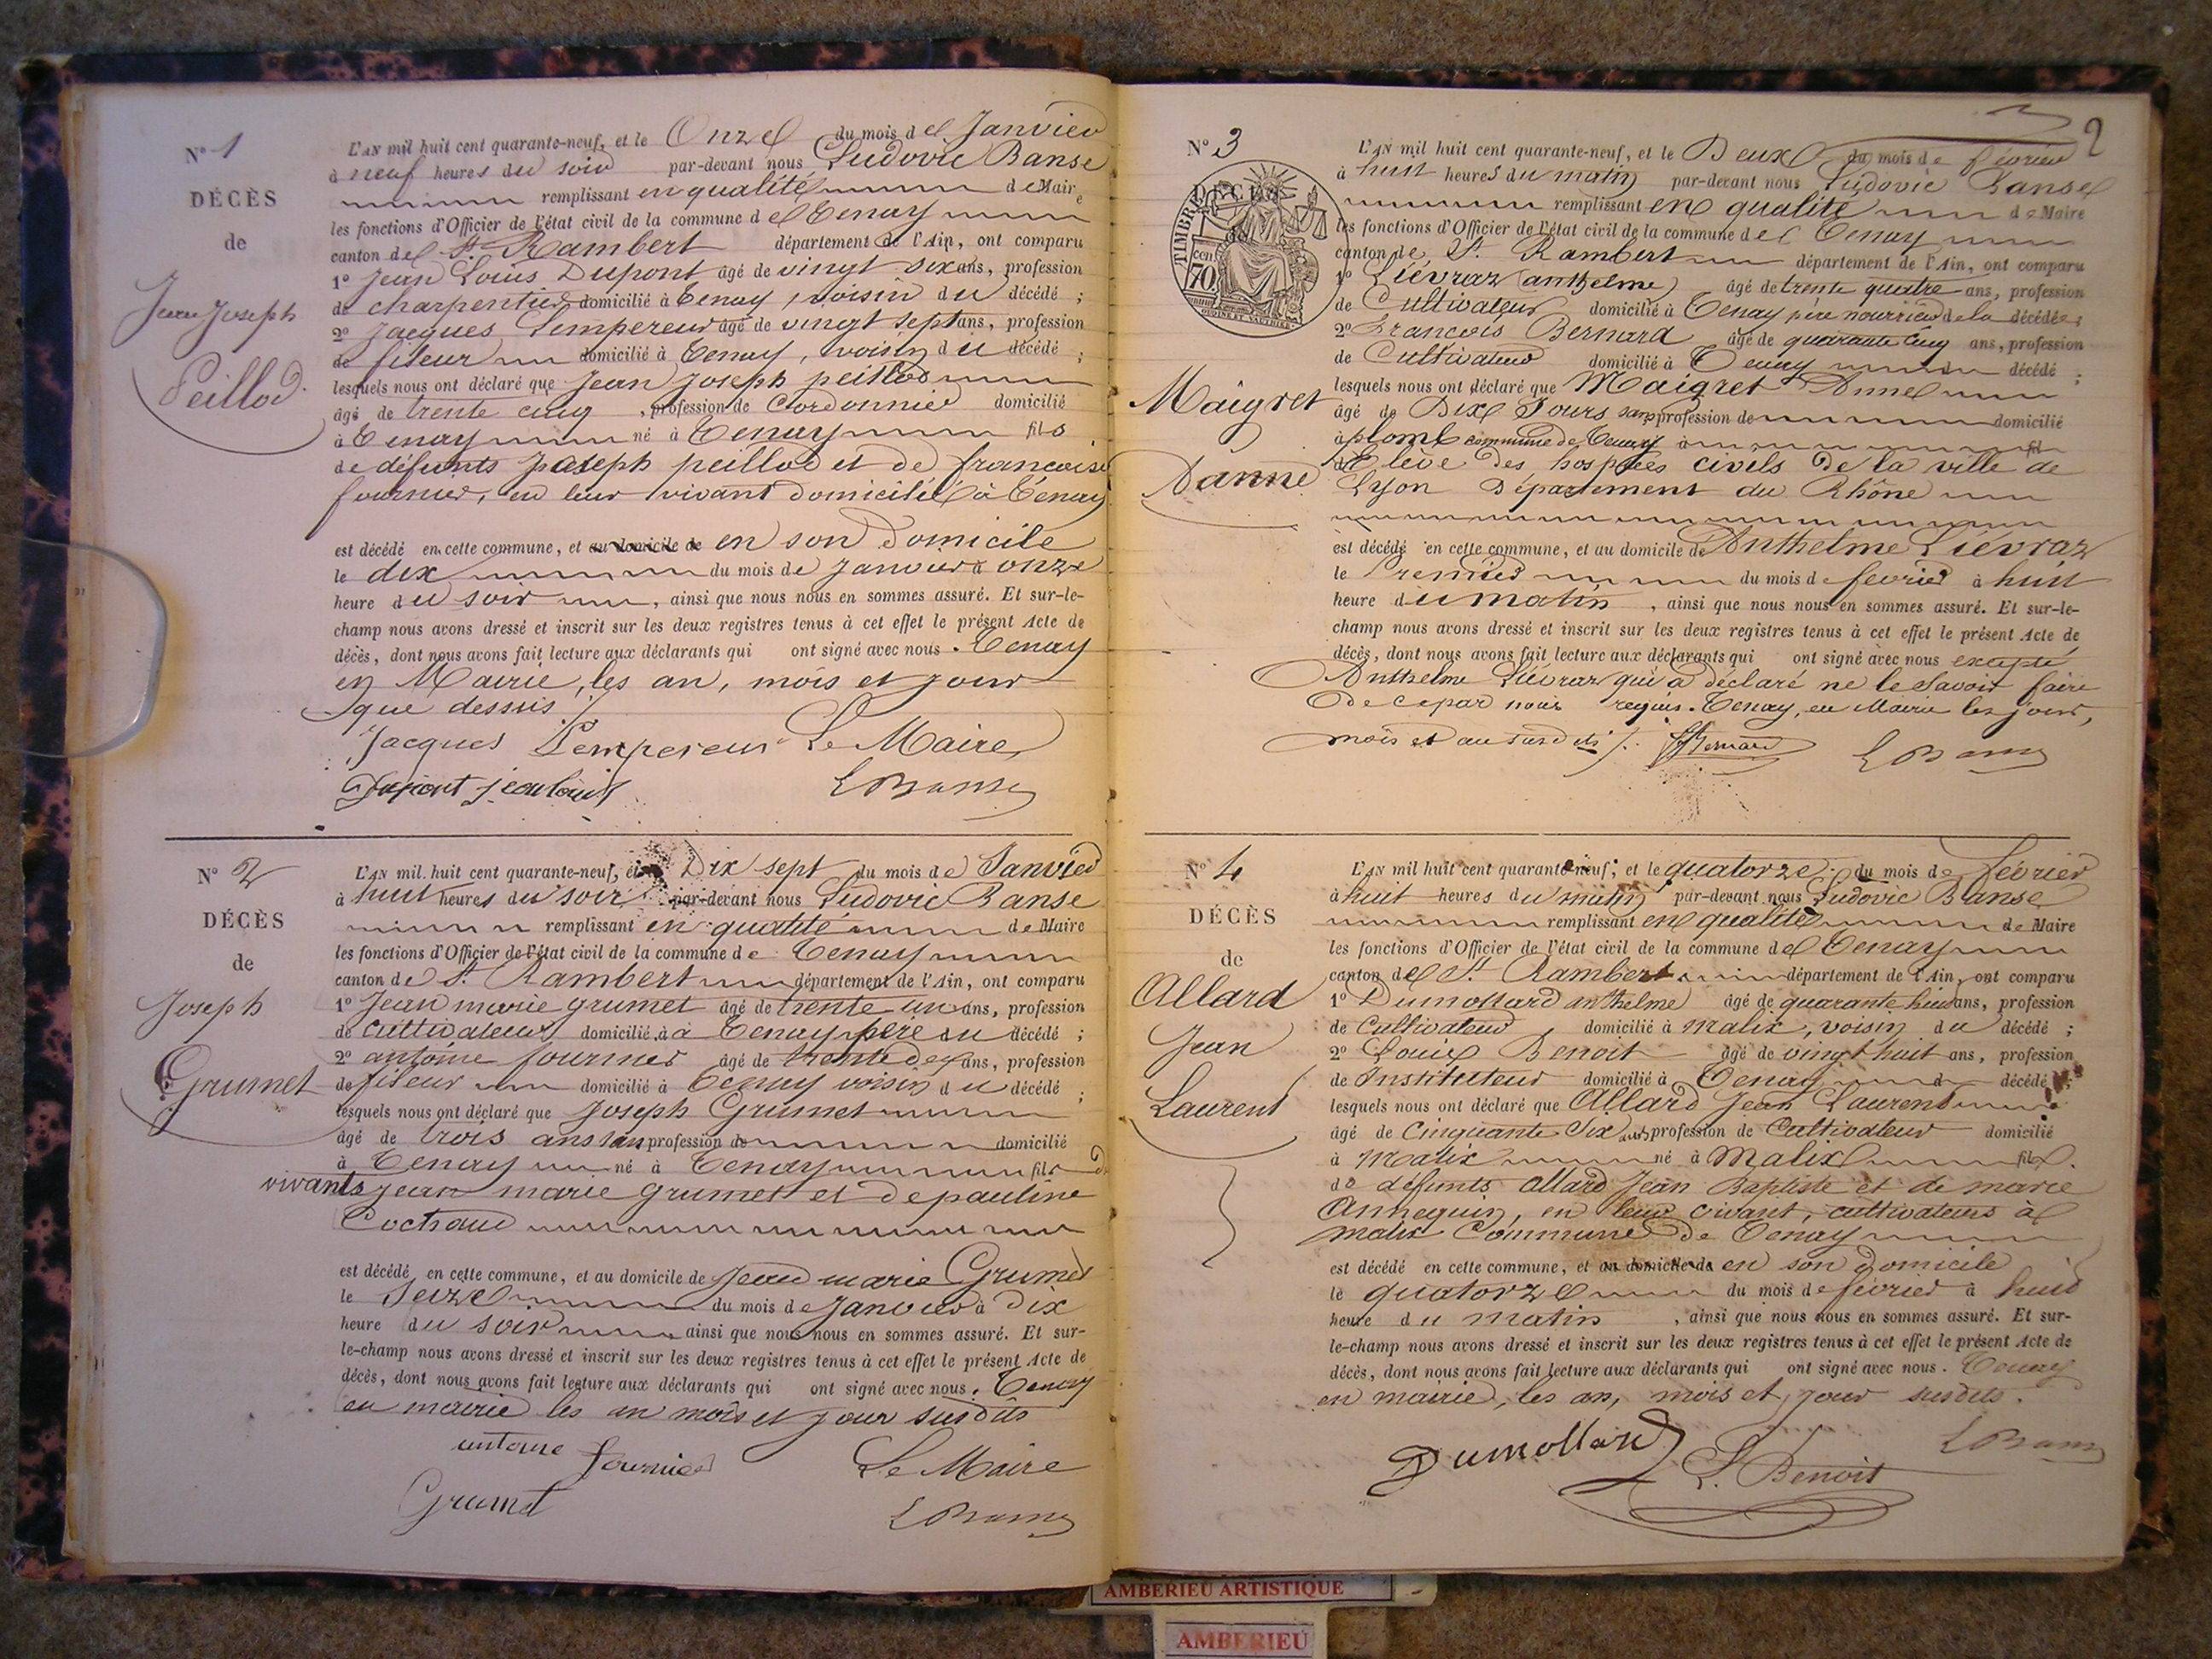 N° 1
DÉCÈS
de
Jean Joseph
Peillod.
L'AN mil huit cent quarante-neuf, et le Onze du mois de Janvier
à neuf heures du soir par-devant nous Ludovic Banse
remplissant en qualité de Maire
les fonctions d'Officier de l'état civil de la commune de Tenay
canton de St. Rambert département de l'Ain, ont comparu
1° Jean Louis Dupont âgé de vingt six ans, profession
de charpentier domicilié à Tenay, voisin du décédé ;
2° Jacques Lempereur âgé de vingt sept ans, profession
de fileur domicilié à Tenay, voisin du décédé ;
lesquels nous ont déclaré que Jean Joseph peillod
âgé de trente cinq , profession de Cordonnier domicilié
à Tenay né à Tenay fils
de défunts Joseph peillod et de francoise
fournier, en leur vivant domiciliés à Tenay
est décédé en cette commune, et au domicile de en son Domicile
le dix du mois de Janvier à onze
heure du soir , ainsi que nous nous en sommes assuré. Et sur-le-
champ nous avons dressé et inscrit sur les deux registres tenus à cet effet le présent Acte de
décès, dont nous avons fait lecture aux déclarants qui ont signé avec nous. Tenay
en Mairie, les an, mois et jour
que dessus /.
Jacques Lempereur Le Maire
Dupont jean louis LBanse
N° 2
DÉCÈS
de
Joseph
Grumet
L'AN mil huit cent quarante-neuf, et le Dix sept du mois de Janvier
à huit heures du soir par-devant nous Ludovic Banse
remplissant en qualité de Maire
les fonctions d'Officier de l'état civil de la commune de Tenay
canton de St. Rambert département de l'Ain, ont comparu
1° Jean marie grumet âgé de trente un ans, profession
de cultivateur domicilié à à Tenay père du décédé ;
2° antoine fournier âgé de trente deux ans, profession
de fileur domicilié à Tenay voisin du décédé ;
lesquels nous ont déclaré que Joseph Grumet
âgé de trois ans sans profession de domicilié
à Tenay né à Tenay fils de
vivants jean marie grumet et de pauline
est décédé en cette commune, et au domicile de Jean marie Grumet
le Seize du mois de Janvier à Dix
heure du soir ainsi que nous nous en sommes assuré. Et sur-
le-champ nous avons dressé et inscrit sur les deux registres tenus à cet effet le présent Acte de
décès, dont nous avons fait lecture aux déclarants qui ont signé avec nous. Tenay
en mairie les an mois et jour susdits
antoine fournier Le Maire
Grumet LBanse
2
N° 3
TIMBRE
cen. 70
Maigret
Danne
L'AN mil huit cent quarante-neuf, et le Deux du mois de février
à huit heures du matin par-devant nous Ludovic Banse
remplissant en qualité de Maire
les fonctions d'Officier de l'état civil de la commune de Tenay
canton de St. Rambert département de l'Ain, ont comparu
1° Liévraz (anthelme) âgé de trente quatre ans, profession
de Cultivateur domicilié à Tenay père nourricier de la décédée ;
2° francois Bernard âgé de quarante cinq ans, profession
de Cultivateur domicilié à Tenay décédé ;
lesquels nous ont déclaré que Maigret Danne
âgé de Dix Jours sans profession de domicilié
à plomb commune de Tenay à fil
Elève des hospices civils de la ville de
Lyon Département du Rhône
est décédé en cette commune, et au domicile de Anthelme Liévraz
le Premier du mois de fevrier à huit
heure du matin , ainsi que nous nous en sommes assuré. Et sur-le-
champ nous avons dressé et inscrit sur les deux registres tenus à cet effet le présent Acte de
décès, dont nous avons fait lecture aux déclarants qui ont signé avec nous excepté
Anthelme Liévraz qui a déclaré ne le savoir faire
de ce par nous requis. Tenay, en Mairie les jour,
mois et an susdits /. fBernard LBanse
N° 4
DÉCÈS
de
Allard
Jean
Laurent
L'AN mil huit cent quarante-neuf, et le quatorze du mois de février
à huit heures du matin par-devant nous Ludovic Banse
remplissant en qualité de Maire
les fonctions d'Officier de l'état civil de la commune de Tenay
canton de St Rambert département de l'Ain, ont comparu
1° Dumollard anthelme âgé de quarante huit ans, profession
de Cultivateur, domicilié à malix, voisin du décédé ;
2° Louis Benoit âgé de vingt huit ans, profession
de Instituteur domicilié à Tenay d décédé ;
lesquels nous ont déclaré que Allard Jean Laurent
âgé de Cinquante Six ans profession de Cultivateur domicilié
à Malix né à Malix fils
de défunts Allard Jean Baptiste et de marie
Annequin, en leur vivant, cultivateurs à
malix Commune de Tenay
est décédé en cette commune, et au domicile de en son Domicile
le quatorze du mois de février à huit
heure du matin , ainsi que nous nous en sommes assuré. Et sur-
le-champ nous avons dressé et inscrit sur les deux registres tenus à cet effet le présent Acte de
décès, dont nous avons fait lecture aux déclarants qui ont signé avec nous. Tenay
en mairie, les an, mois et jour susdits.
Dumollard L. Benoit LBanse
AMBERIEU ARTISTIQUE
AMBERIEU